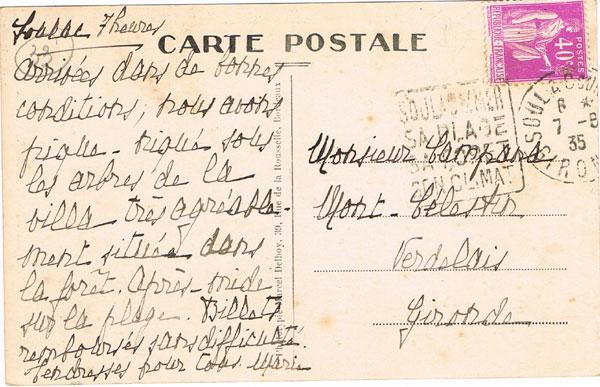 Soulac 7 heures
23
CARTE POSTALE
Arrivées dans de bonnes
conditions, nous avons
pique-niqué sous
les arbres de la
villa très agréable-
ment située dans
la forêt. Après-midi
sur la plage. Billets
remboursés sans difficulté.
Tendresses pour tous. Marie
Marcel Delboy, 39, Rue de la Rousselle, Bordeaux
POSTES
40c
REPUBLIQUE FRANÇAISE
SOULAC S/MER
SA PLAGE
SA FORET
SON CLIMAT
SOULAC
8
7 -8
35
GIRONDE
Monsieur
Mont-Célestin
Verdelais
Gironde